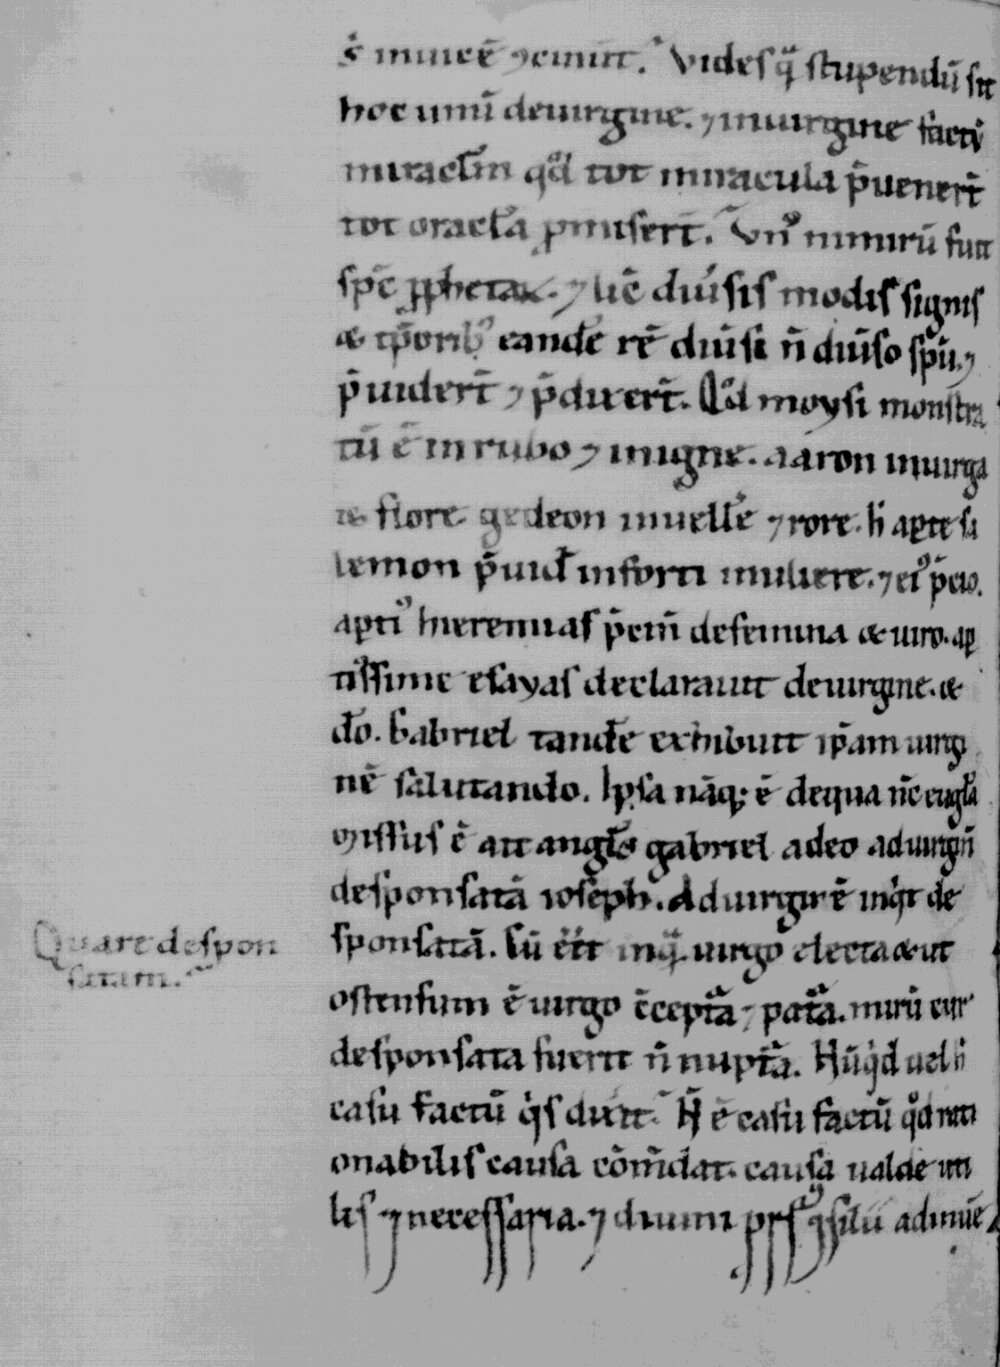 s̄ inuicē ⁊ciniūt. Vides qͣ stupendū sit
hoc unū deuirgine. ⁊inuirgine factū
miraclm̄ qd̄ tot miracula p̄uenert̄
tot oracl̄a ꝓmiserт̄. Vnꝰ nimirū fuit
sp̄c ꝓphetaꝝ. ⁊ lic̄ diu͛sis modis signis
& tp̄oribꝫ eandē rē diu͛si n̄ diu͛so sp̄u. ⁊
p̄uidert̄ ⁊ p̄dixert̄. Qd̄ moysi monstra
tū ē inrubo ⁊ inigne. aaron inuirga
& flore. gedeon inuellē ⁊rore. h̄ apte sa
lemon p̄uid̄ inforti muliere. ⁊ eiꝰ p̄cio.
aptiꝰ hieremias p̄cin̄ defemina & uiro. ap
tissime esayas declarauit deuirgine. &
dō. Gabriel tandē exhibuit ip̄am uirgi
nē salutando. Ipsa nāqꝫ ē dequa nc̄ eugl̄a
Missus ē ait anglꝰ gabriel adeo aduirginē
desponsatā ioseph. Aduirginē inqͥt de
sponsatā. Cū ēēt inqͣ uirgo electa & ut
ostensum ē uirgo ꝯceptͣa ⁊ patͣa. mirū cur
desponsata fuerit n̄ nuptͣa. Nūqͥd uel h̄
casu factū qͥs dixit. N̄ ē casu factū qd̄ rati
onabilis causa cōmd̄at. causa ualde uti
lis ⁊ necessaria. ⁊ diuini prsꝰ ꝯsiliī adinuē
Quare despon
satam.